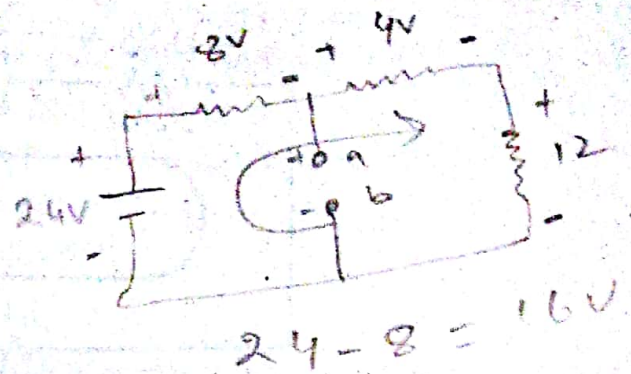 8V + 4V -
+ -
+ +
24V + a 12
- - b -
24 - 8 = 16V